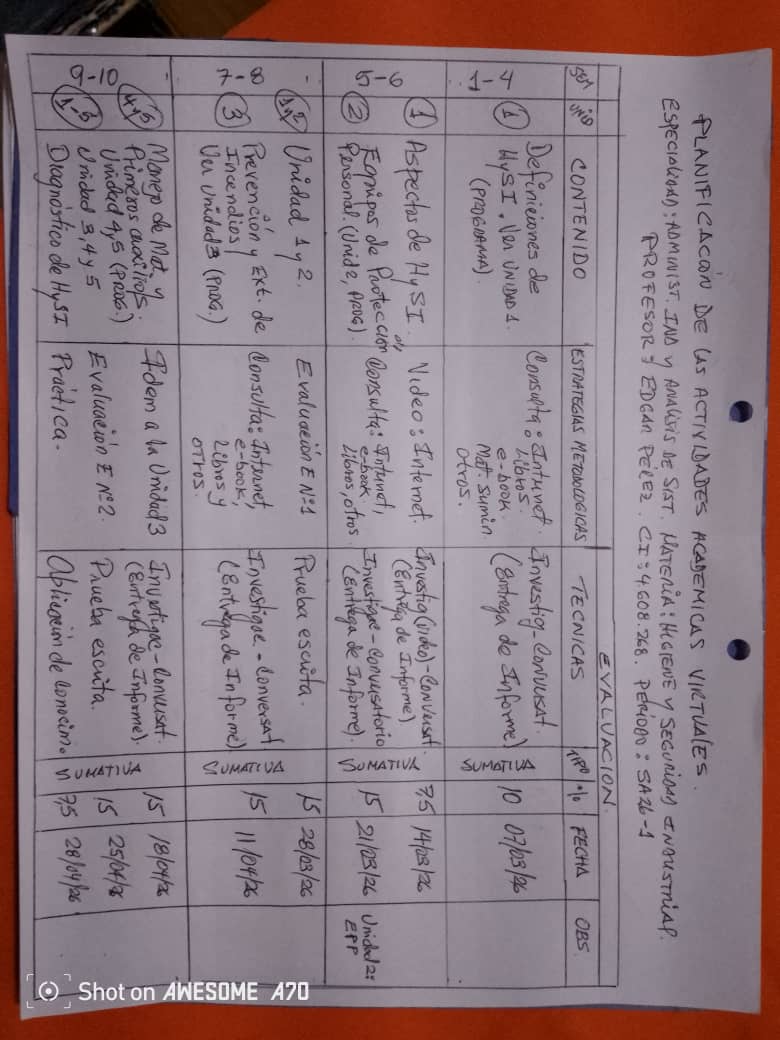 PLANIFICACIÓN DE LAS ACTIVIDADES ACADEMICAS VIRTUALES.
ESPECIALIDAD: ADMINIST. IND Y ANALISIS DE SIST. MATERIA: HIGIENE Y SEGURIDAD INDUSTRIAL.
PROFESOR: EDGAR PÉREZ. CI: 4.608.268. PERÍODO: SA26-1
EVALUACION.
SEM UNID CONTENIDO ESTRATEGIAS METODOLOGICAS TECNICAS TIPO % FECHA OBS.
1-4 1 Definiciones de Consulta: Internet. Investig-Conversat. SUMATIVA 10 07/03/26
HySI. Ver UNIDAD 1. Libros. (Entrega de Informe)
(PROGRAMA). e-book.
Mat. sumin.
Otros.
5-6 1 Aspectos de HySI. Video: Internet. Investig(video)-Conversat. SUMATIVA 7,5 14/03/26
(Entrega de Informe)
2 Equipos de Protección Consulta: Internet, Investigac-Conversatorio 15 21/03/26 Unidad 2:
Personal. (Unid 2, PROG). e-book, (Entrega de Informe). EPP
Libros, otros.
7-8 1y2 Unidad 1 y 2. Evaluación E Nº1 Prueba escrita. SUMATIVA 15 28/03/26
3 Prevención y Ext. de Consulta: Internet, Investigac.-Conversat 15 11/04/26
Incendios e-book, (Entrega de Informe)
Ver Unidad 3 (PROG.) Libros y
otros.
9-10 4y5 Manejo de Mat y Idem a la Unidad 3 Investigac-Conversat. SUMATIVA 15 18/04/26
Primeros auxilios. (Entrega de Informe).
Unidad 4y5 (PROG.)
Unidad 3,4 y 5 Evaluación E Nº2. Prueba escrita. 15 25/04/26
Diagnóstico de HySI Práctica. Aplicación de Conocim. 7,5 28/04/26
Shot on AWESOME A70